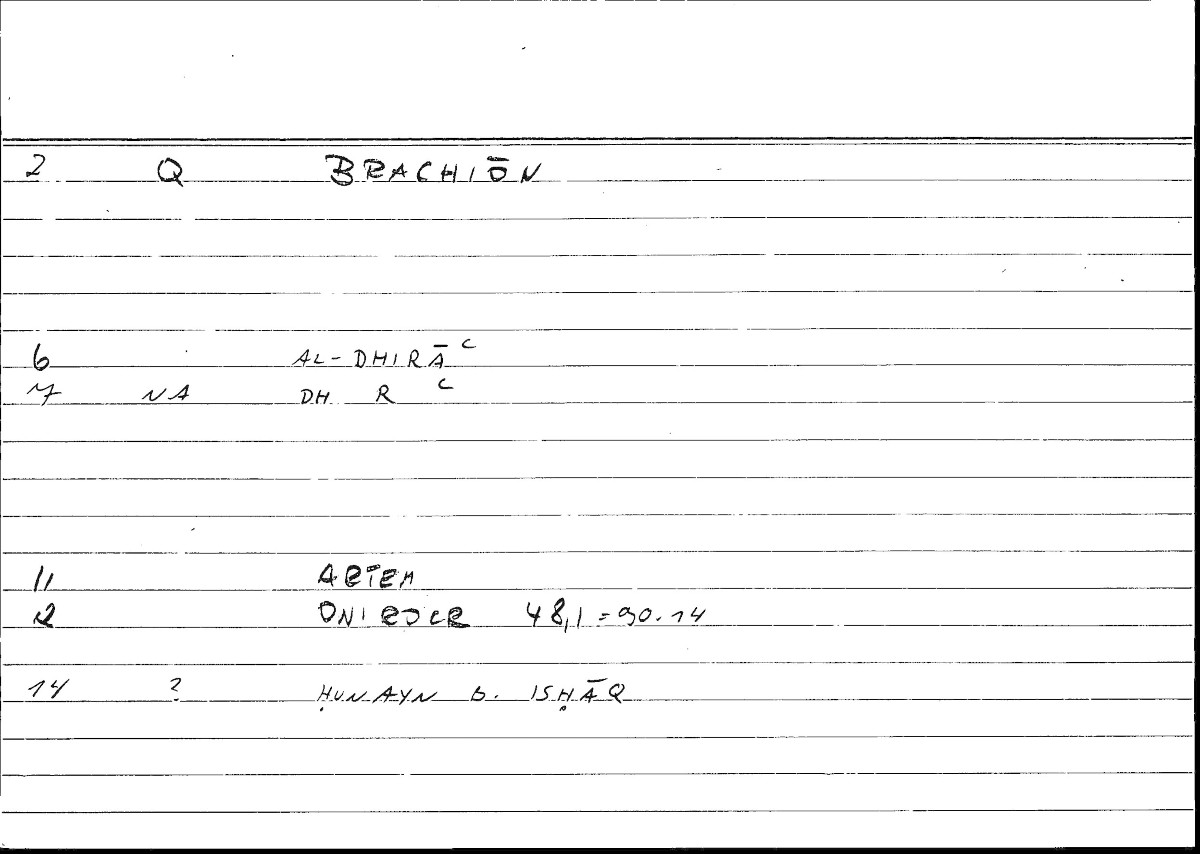 2 Q BRACHIŌN
6 AL-DHIRĀ ᶜ
7 NA DH R ᶜ
11 ARTEM
12 ONIROCR 48,1 = 90.14
14 ? ḤUNAYN B. ISḤĀQ